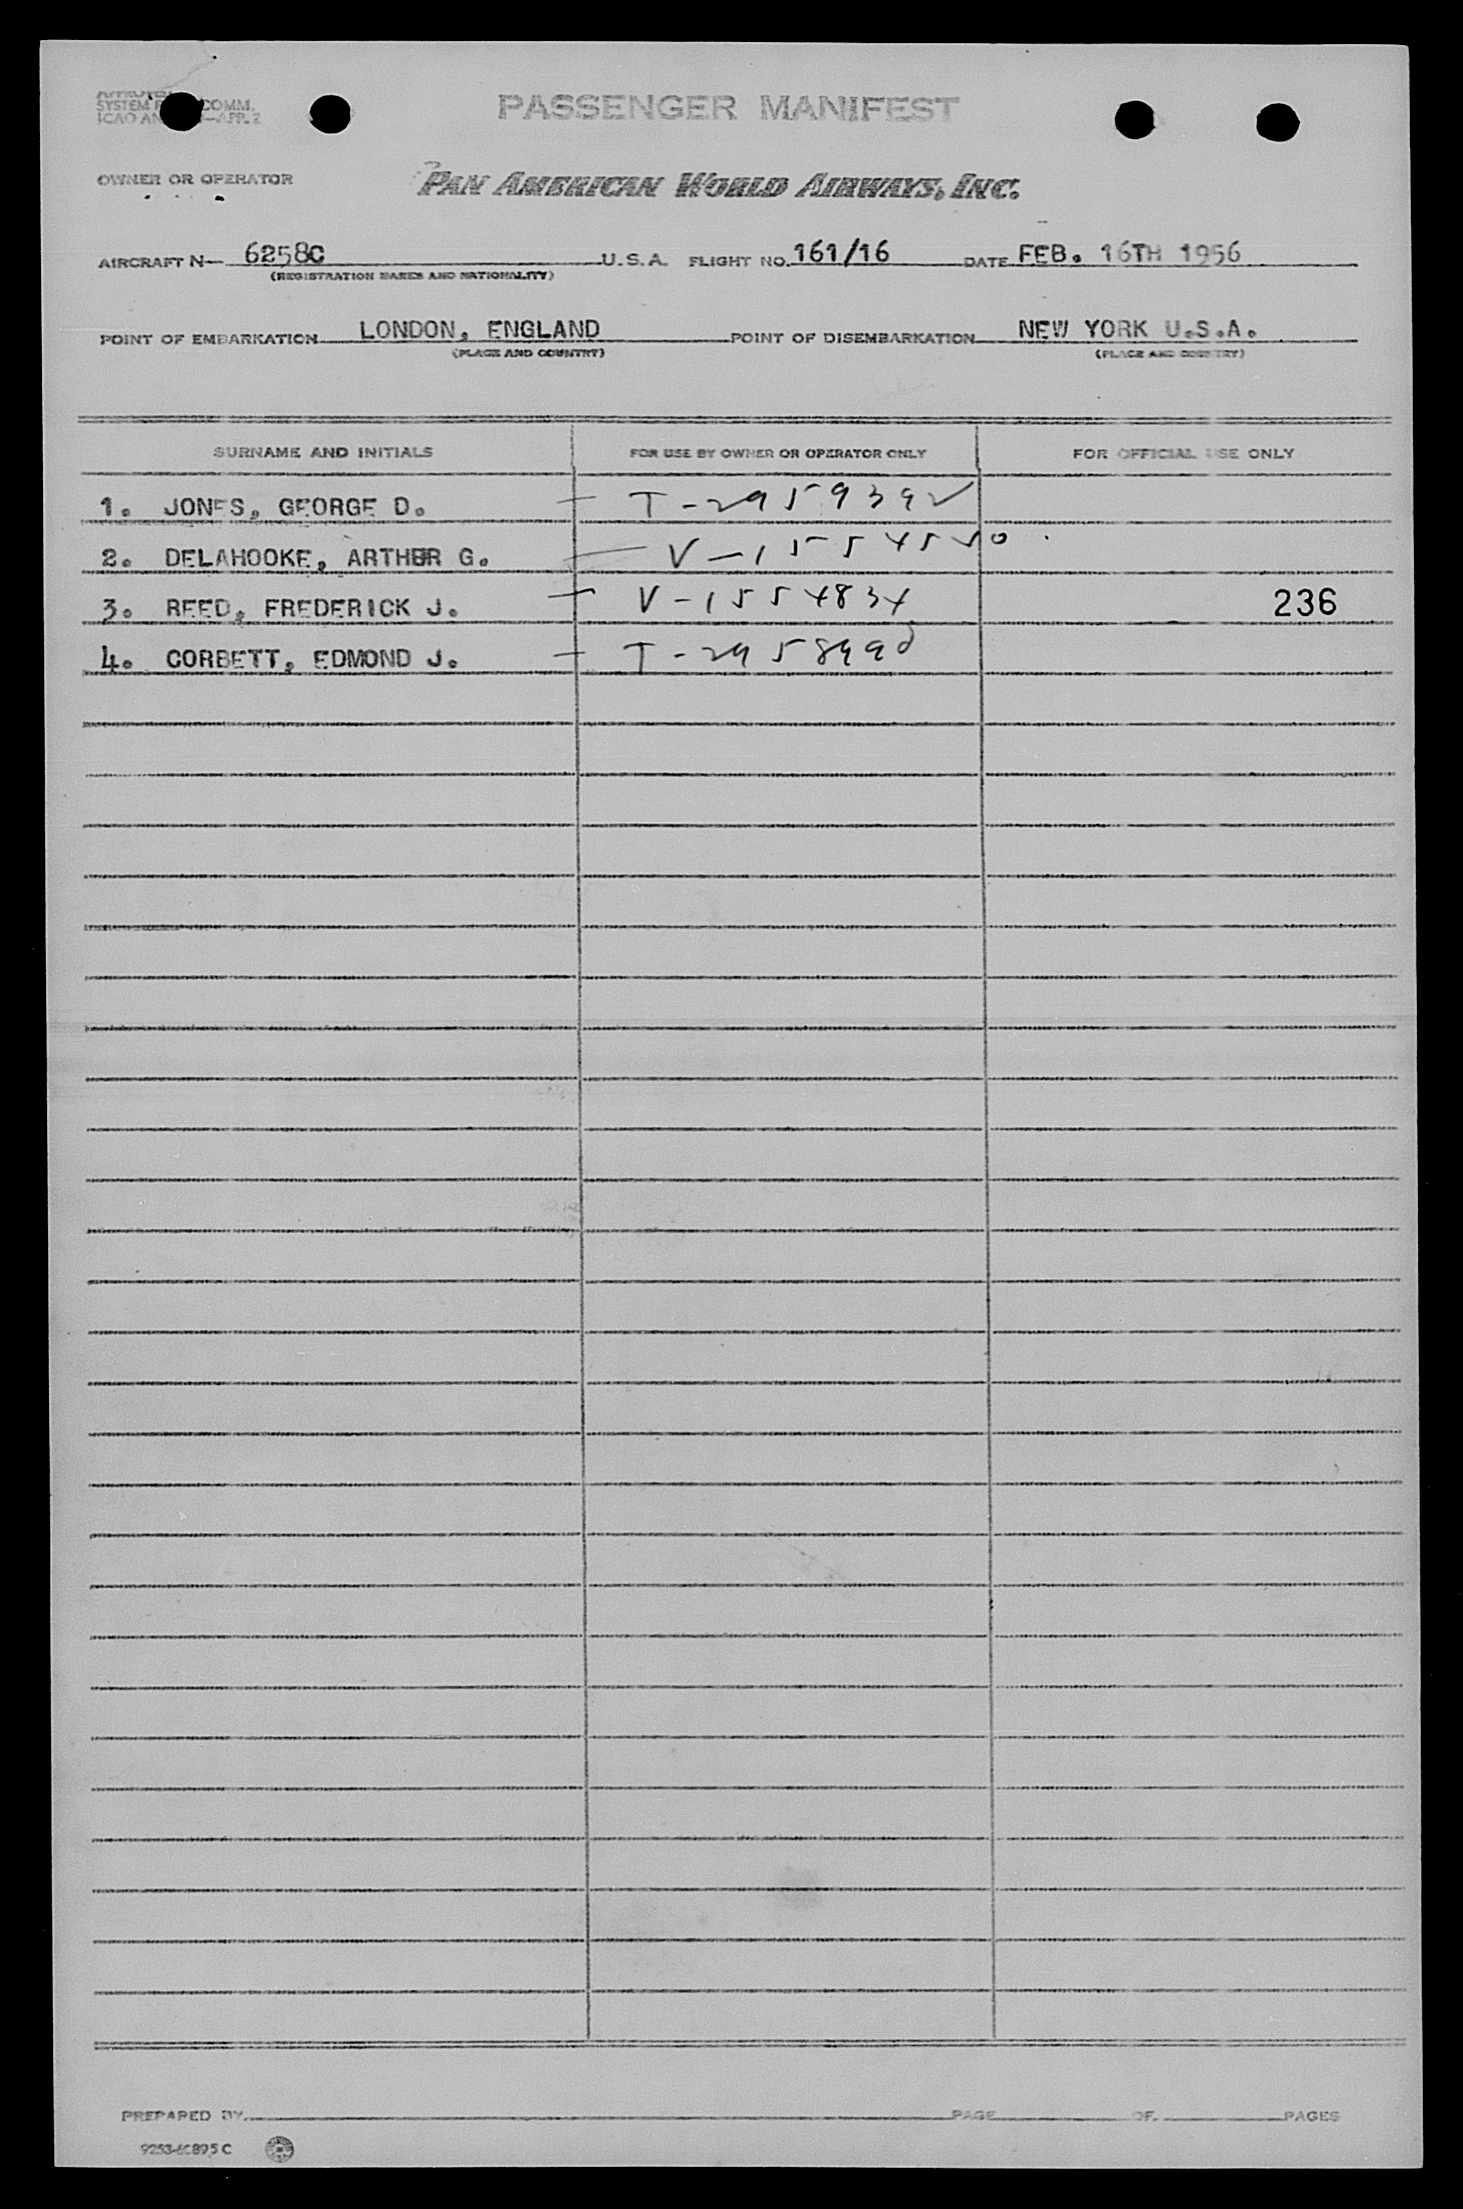 SYSTEM COMM.
ICAO AN —APP. 2
PASSENGER MANIFEST
OWNER OR OPERATOR
PAN AMERICAN WORLD AIRWAYS, INC.
AIRCRAFT N— 6258C U.S.A. FLIGHT NO. 161/16 DATE FEB. 16TH 1956
(REGISTRATION MARKS AND NATIONALITY)
POINT OF EMBARKATION LONDON, ENGLAND POINT OF DISEMBARKATION NEW YORK U.S.A.
(PLACE AND COUNTRY) (PLACE AND COUNTRY)
SURNAME AND INITIALS FOR USE BY OWNER OR OPERATOR ONLY FOR OFFICIAL USE ONLY
1. JONES, GEORGE D. — T-2959392
2. DELAHOOKE, ARTHUR G. — V-1554550
3. REED, FREDERICK J. — V-1554834 236
4. CORBETT, EDMOND J. — T-295899
PREPARED BY PAGE OF PAGES